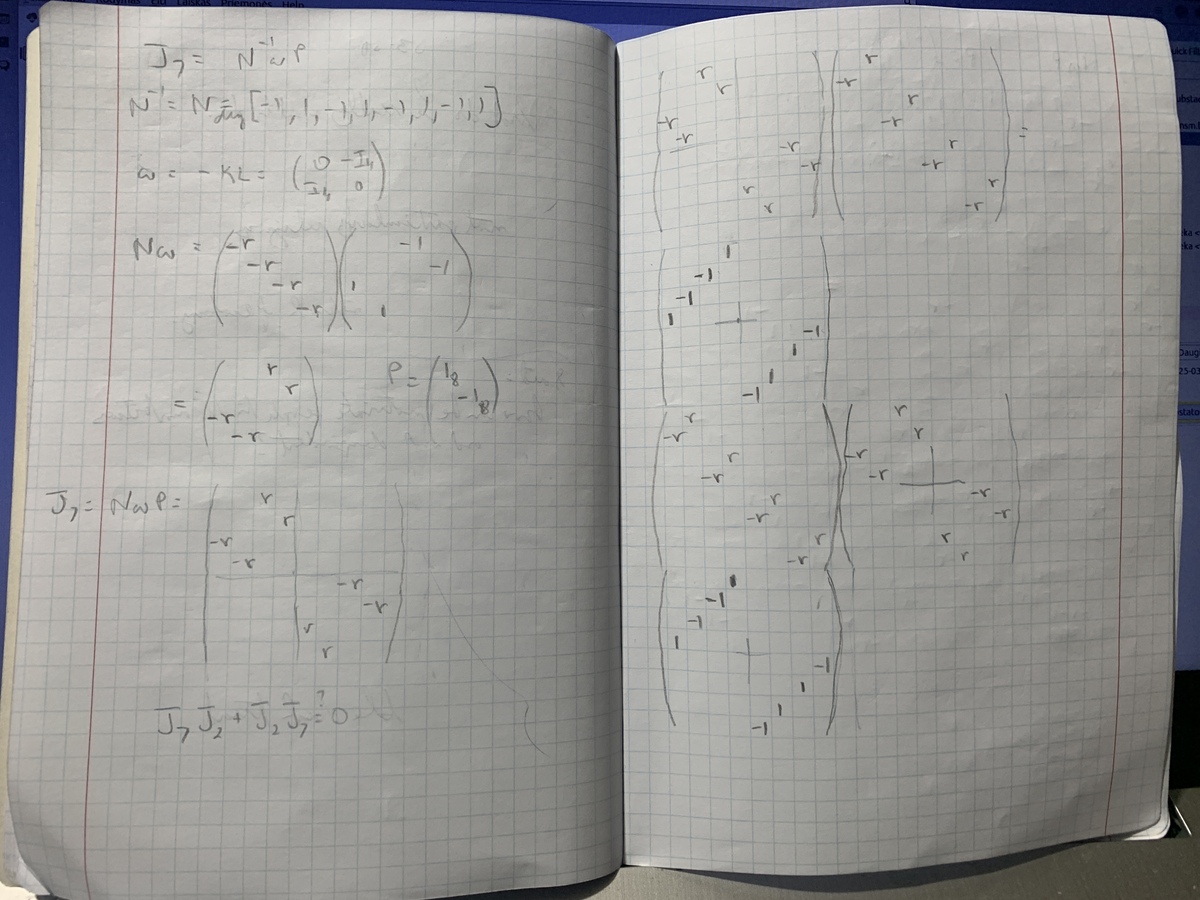 J₇ = N⁻¹ωP
N⁻¹ = N = diag [-1, 1, -1, 1, -1, 1, -1, 1]
ω = - KL = ( 0 -I₄
I₄ 0 )
Nω = ( -r -r -r -r ) ( -1 -1 1 1 )
= ( r r -r -r ) P = ( 1₈ -1₈ )
J₇ = NωP =
r
r
-r
-r
-r
-r
r
r
J₇ J₂ + J₂ J₇ ?= 0
r r
-r
-r -r
-r r
r r
-r r
-r r
-r r
-r r
-r =
1
-1
-1
1 -1
1
1
-1
r r
-r r
r -r
-r -r
r -r
-r -r
r r
-r r
1
-1
-1
1 -1
1
1
-1